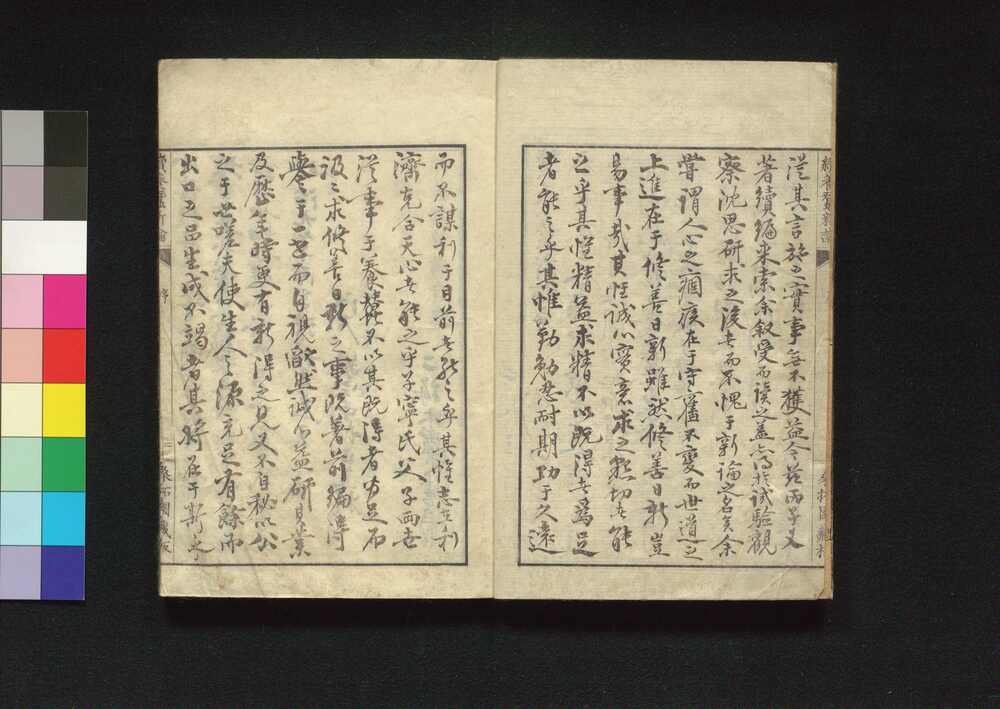 従其言施之實事無不獲益今茲丙子又
著續編来索余叙受而讀之益高於試驗觀
察沈思研求之後者而不愧于新論之名矣余
嘗謂人心之痼疾在于守舊不變而世道之
上進在于修善日新雖然修善日新豈
易事哉其惟誠心實意求之懇切者能
之乎其惟精益求精不以既得者為足
者能之乎其惟勤勉忍耐期功于久遠
而不謀利于目前者能之乎其惟志在利
濟克合天心者能之乎子寧氏父子両世
従事于養蠶不以其既得者為足而
汲々求修善日新之事既著前編得
譽于世而自視歉然誠心益研其業
及歴年時更有新得之見又不自秘以公
之于世嗟夫使生人之源充足有餘而
出口之品生成不竭者其将在于斯乎
序